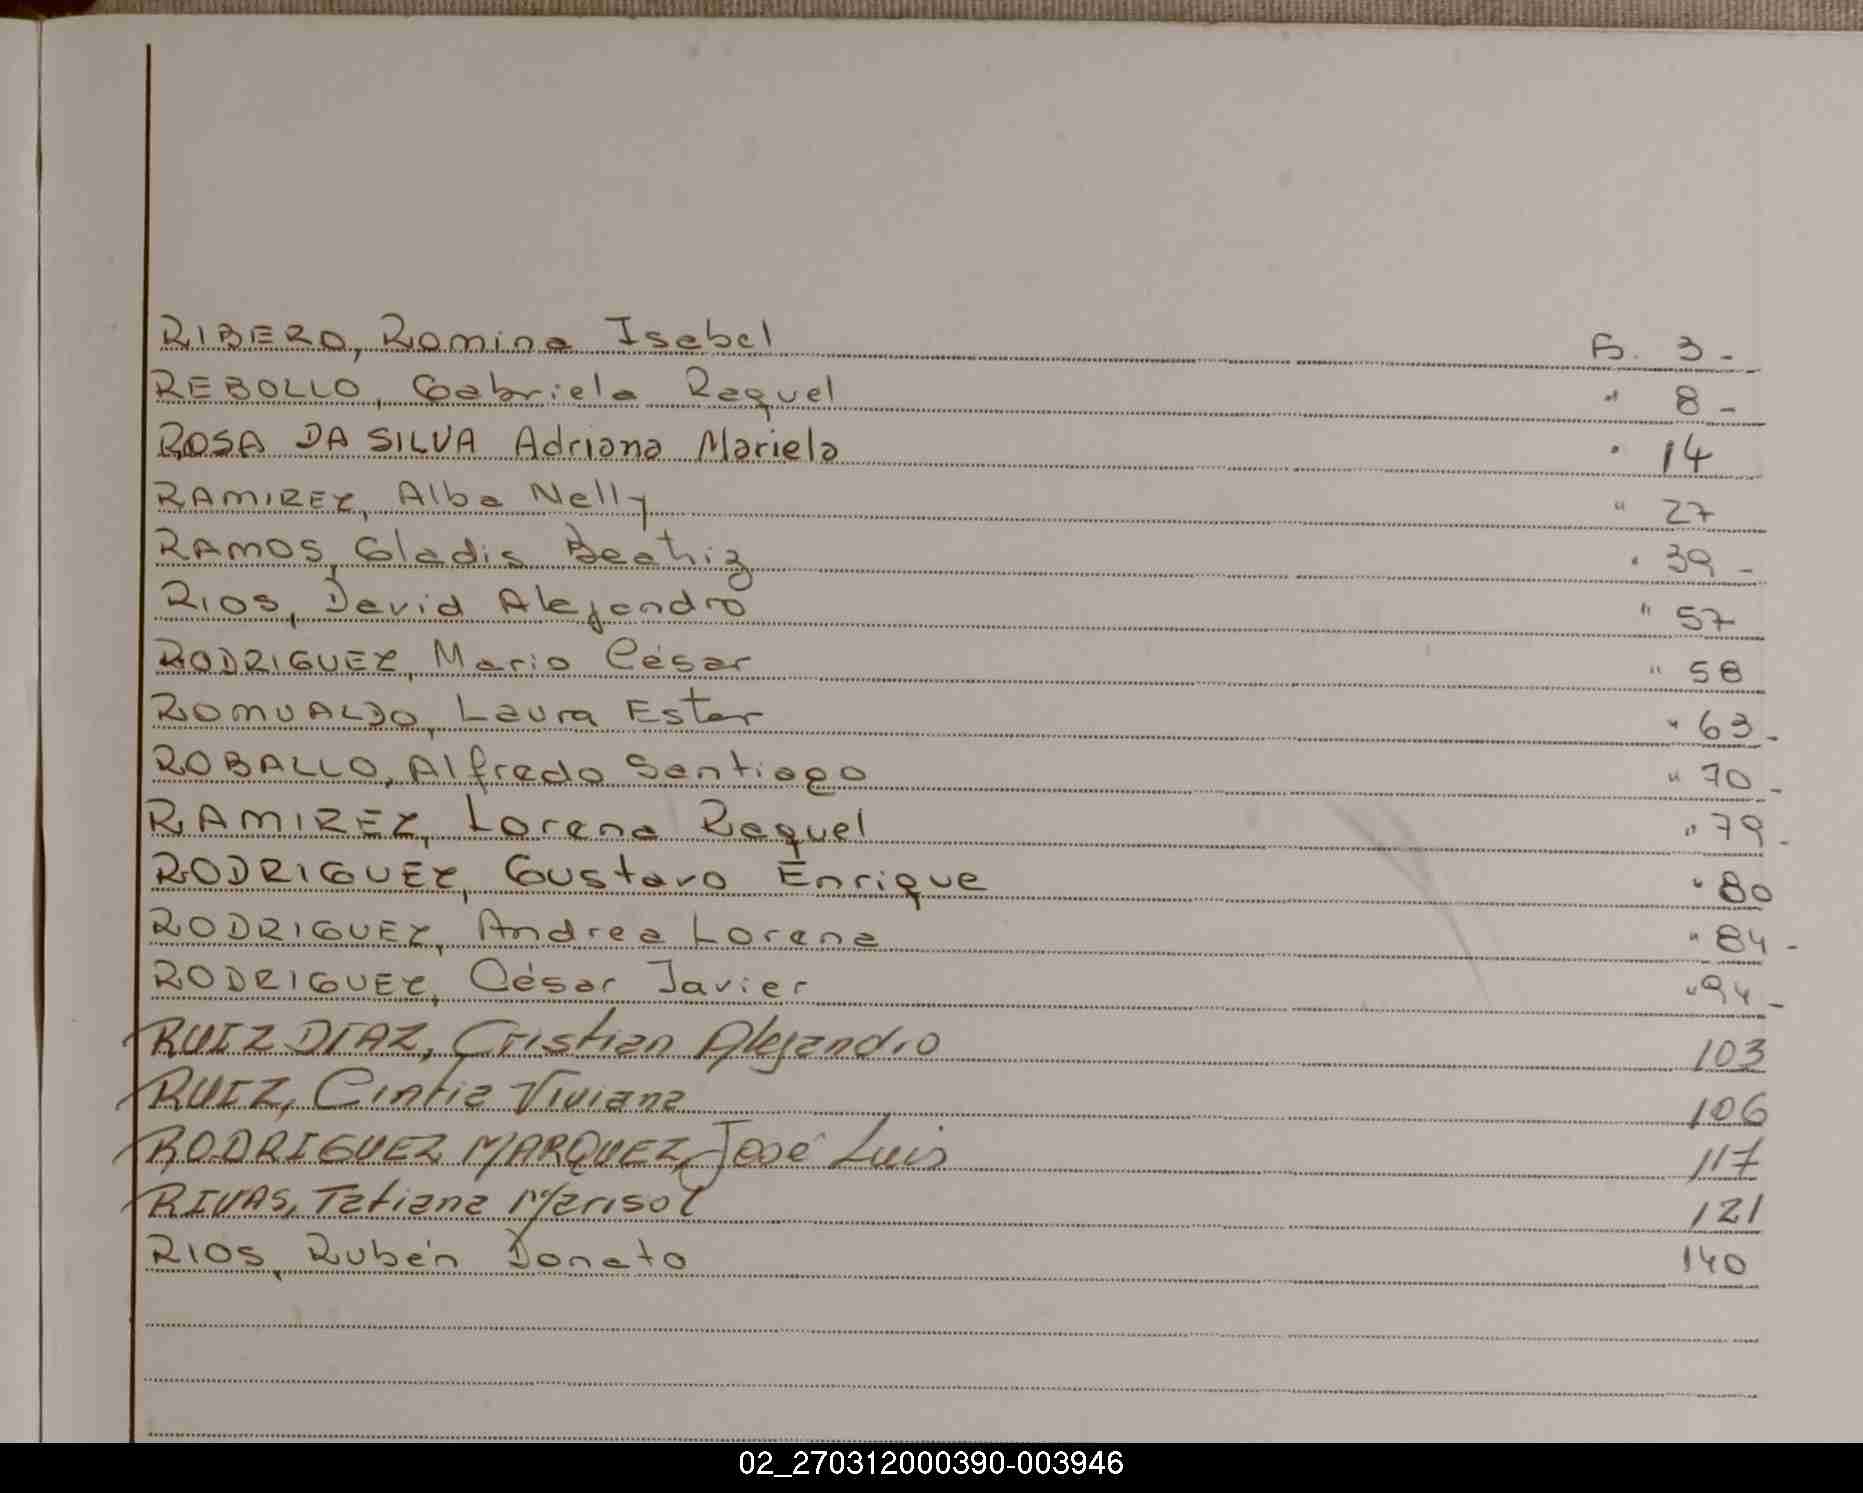 RIBERO, Romina Isabel Fs. 3 -
REBOLLO, Gabriela Raquel " 8 -
ROSA DA SILVA Adriana Mariela " 14
RAMIREZ, Alba Nelly " 27
RAMOS, Gladis Beatriz " 39 -
RIOS, David Alejandro " 57
RODRIGUEZ, Mario César " 58
ROMUALDO, Laura Ester " 63 -
ROBALLO, Alfredo Santiago " 70 -
RAMIREZ, Lorena Raquel " 79 -
RODRIGUEZ, Gustavo Enrique " 80
RODRIGUEZ, Andrea Lorena " 84 -
RODRIGUEZ, César Javier " 94 -
RUIZ DIAZ, Cristian Alejandro 103
RUIZ, Cintia Viviana 106
RODRIGUEZ MARQUEZ, José Luis 117
RIVAS, Tatiana Marisol 121
RIOS, Rubén Donato 140
02_270312000390-003946